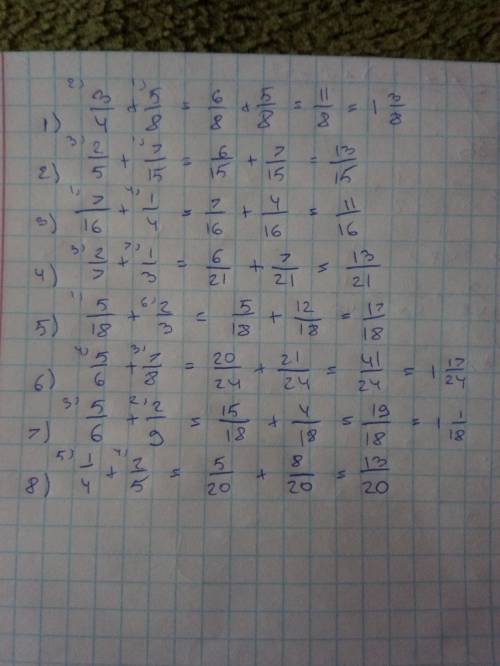 1) 2) 3/4 + 1) 5/8 = 6/8 + 5/8 = 11/8 = 1 3/8
2) 3) 2/5 + 1) 7/15 = 6/15 + 7/15 = 13/15
3) 1) 7/16 + 4) 1/4 = 7/16 + 4/16 = 11/16
4) 3) 2/7 + 7) 1/3 = 6/21 + 7/21 = 13/21
5) 1) 5/18 + 6) 2/3 = 5/18 + 12/18 = 17/18
6) 4) 5/6 + 3) 7/8 = 20/24 + 21/24 = 41/24 = 1 17/24
7) 3) 5/6 + 2) 2/9 = 15/18 + 4/18 = 19/18 = 1 1/18
8) 5) 1/4 + 4) 2/5 = 5/20 + 8/20 = 13/20